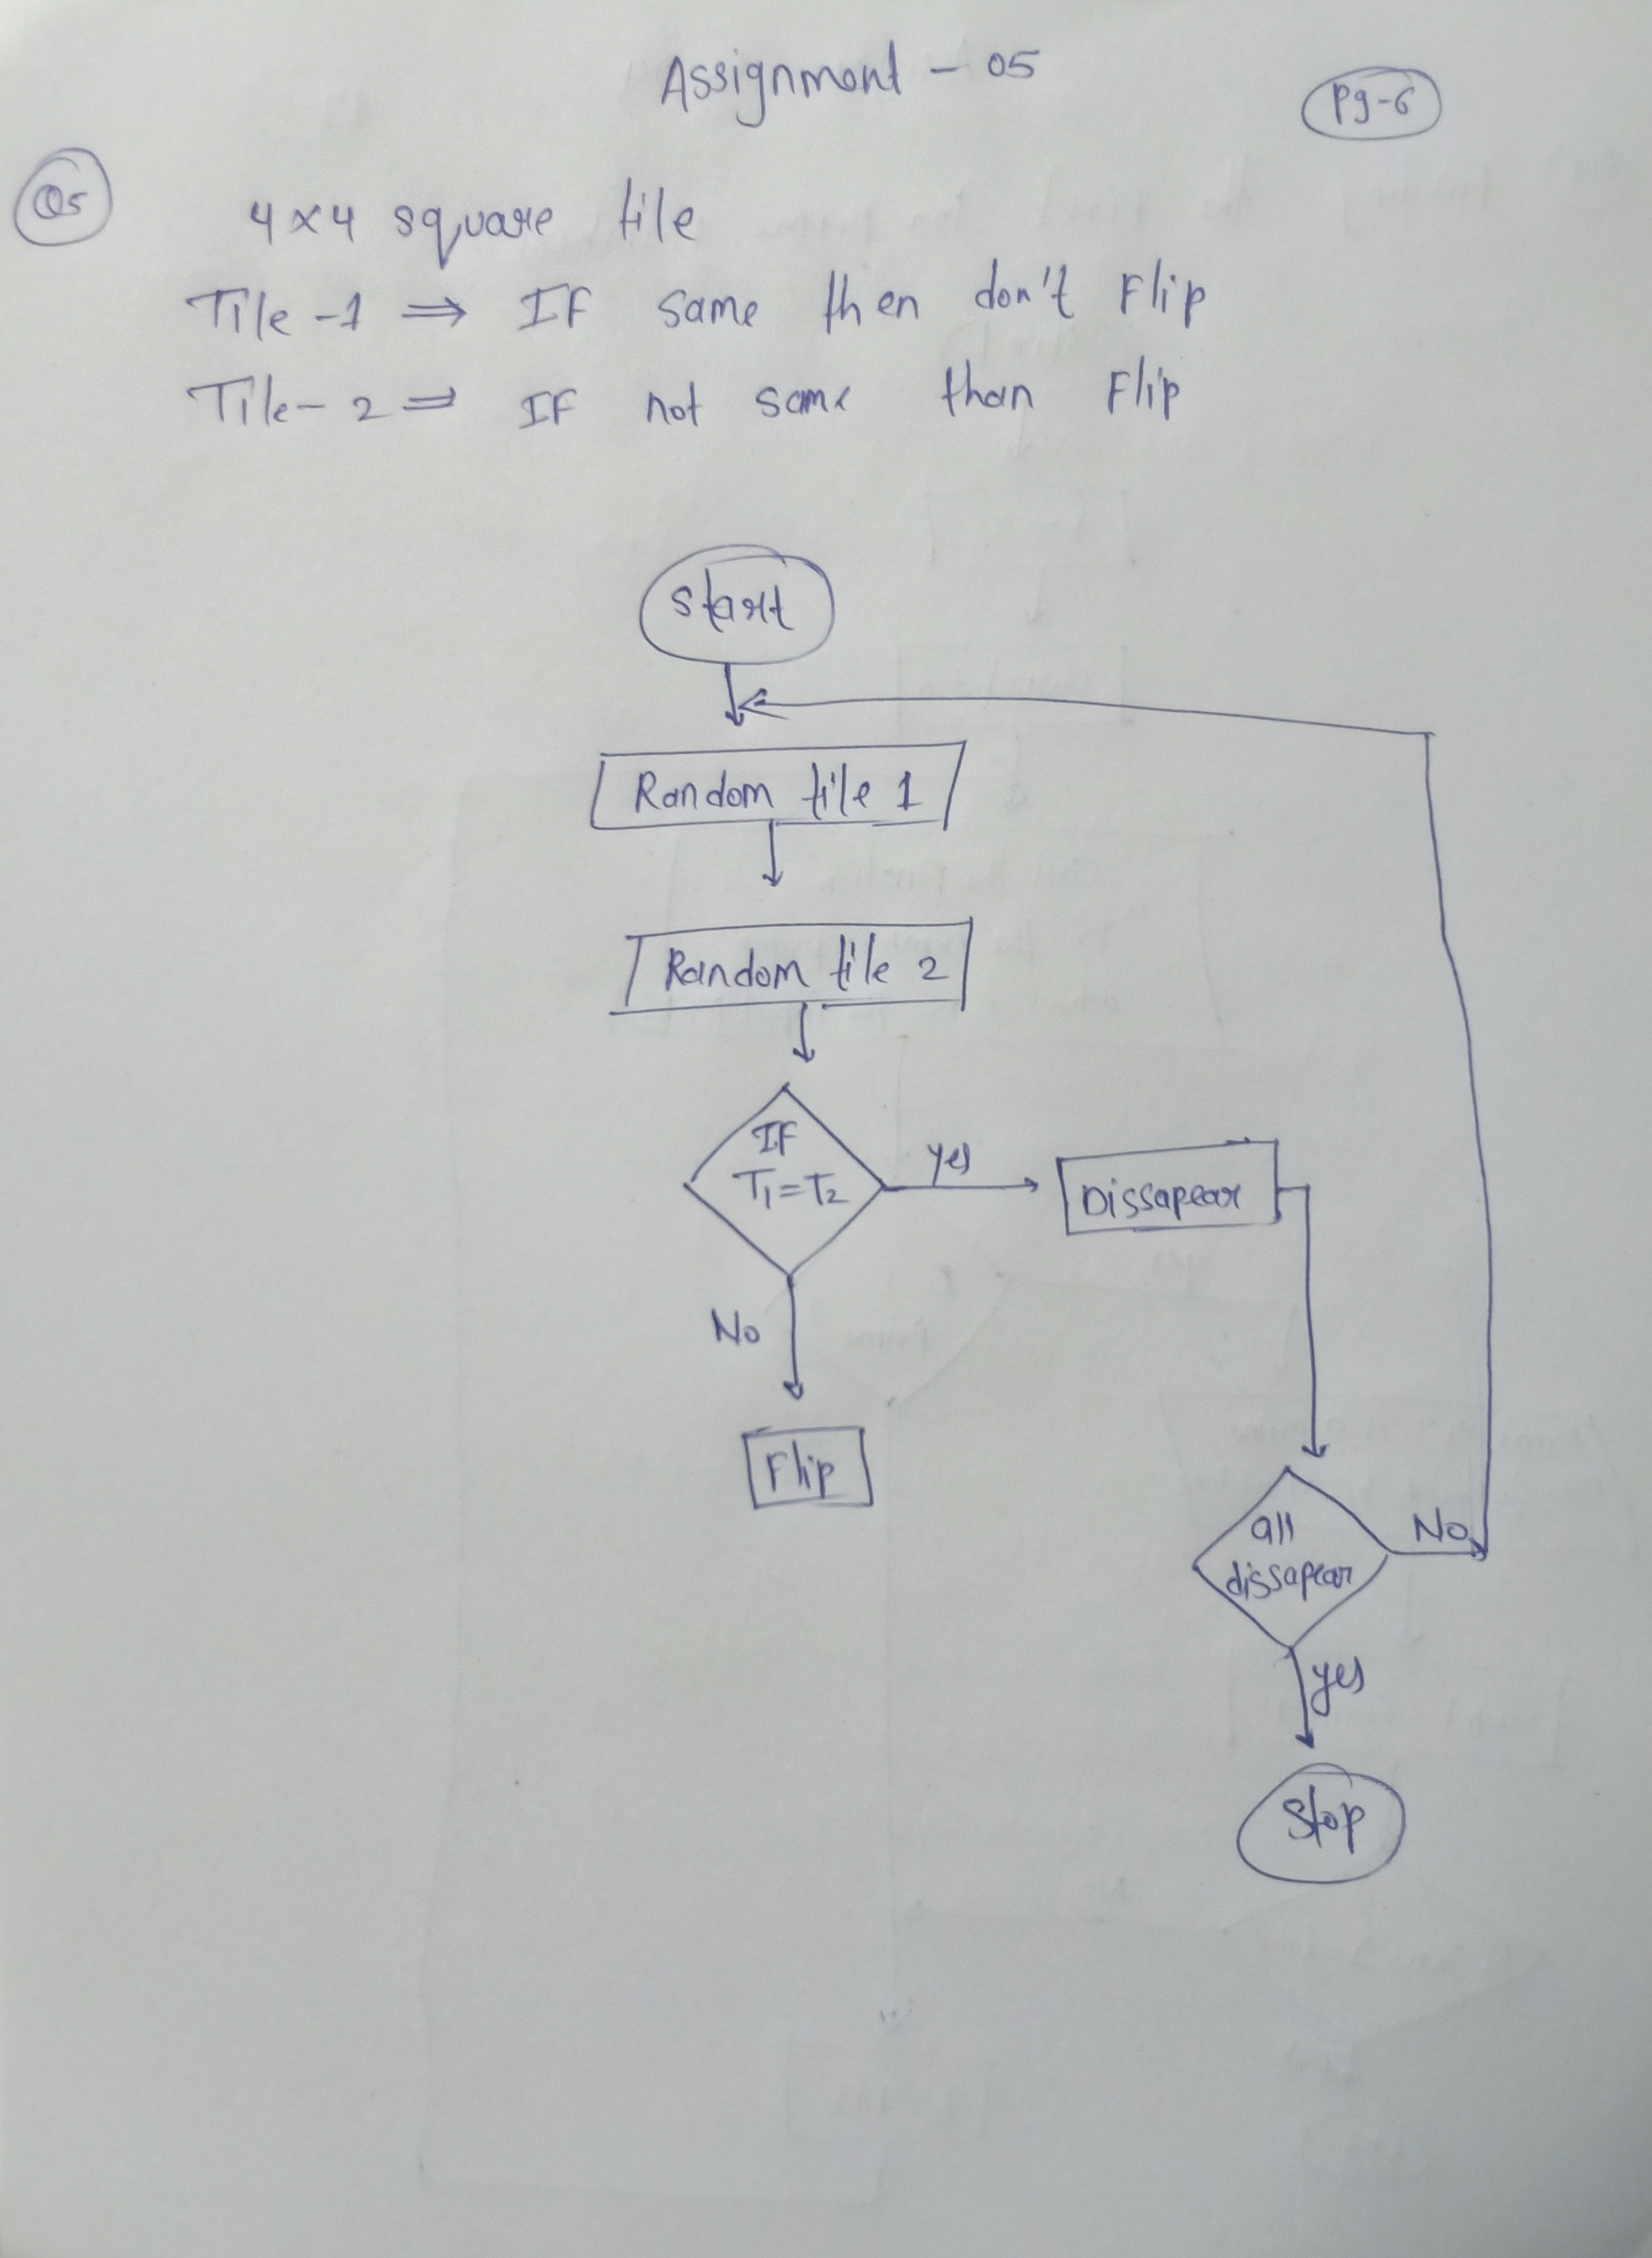 Assignment - 05
Pg-6
Q5
4x4 square tile
Tile -1 ⇒ IF same then don't Flip
Tile- 2 ⇒ IF not same than Flip
Start
Random tile 1
Random tile 2
IF
T1=T2
yes
Dissapear
No
Flip
all
dissapear
No
yes
Stop